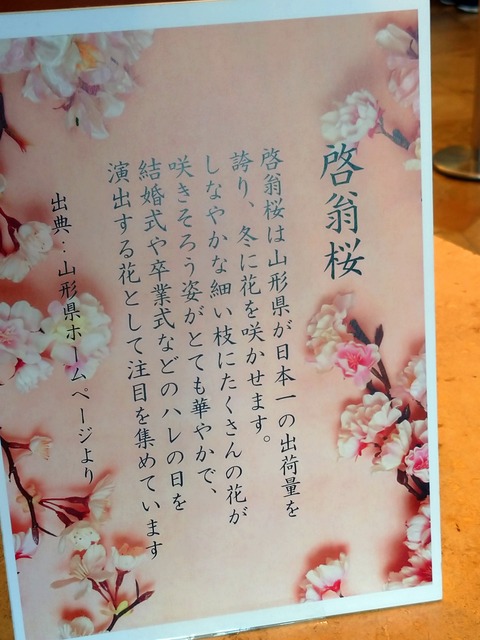 啓翁桜
啓翁桜は山形県が日本一の出荷量を
誇り、冬に花を咲かせます。
しなやかな細い枝にたくさんの花が
咲きそろう姿がとても華やかで、
結婚式や卒業式などのハレの日を
演出する花として注目を集めています
出典：山形県ホームページより